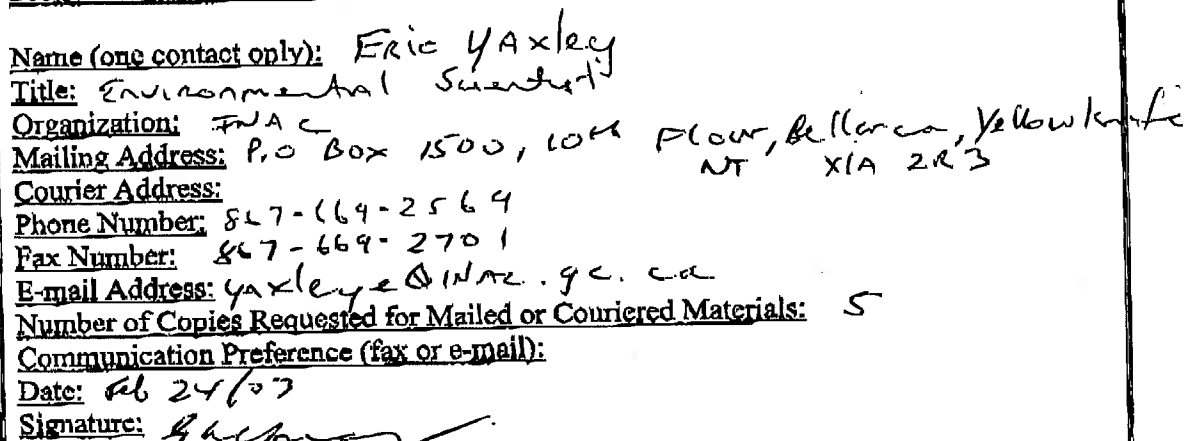 Name (one contact only): Eric Yaxley
Title: Environmental Scientist
Organization: INAC
Mailing Address: P.O Box 1500, 10th Floor, Bellanca, Yellowknife
NT X1A 2R3
Courier Address:
Phone Number: 867-669-2569
Fax Number: 867-669-2701
E-mail Address: yaxleye@INAC.gc.ca
Number of Copies Requested for Mailed or Couriered Materials: 5
Communication Preference (fax or e-mail):
Date: Feb 24/03
Signature: